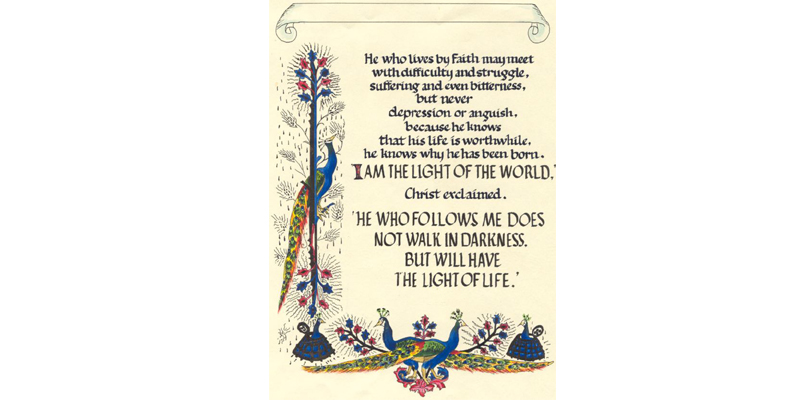 He who lives by Faith may meet
with difficulty and struggle,
suffering and even bitterness,
but never
depression or anguish,
because he knows
that his life is worthwhile,
he knows why he has been born.
'I AM THE LIGHT OF THE WORLD,'
Christ exclaimed.
'HE WHO FOLLOWS ME DOES
NOT WALK IN DARKNESS.
BUT WILL HAVE
THE LIGHT OF LIFE.'